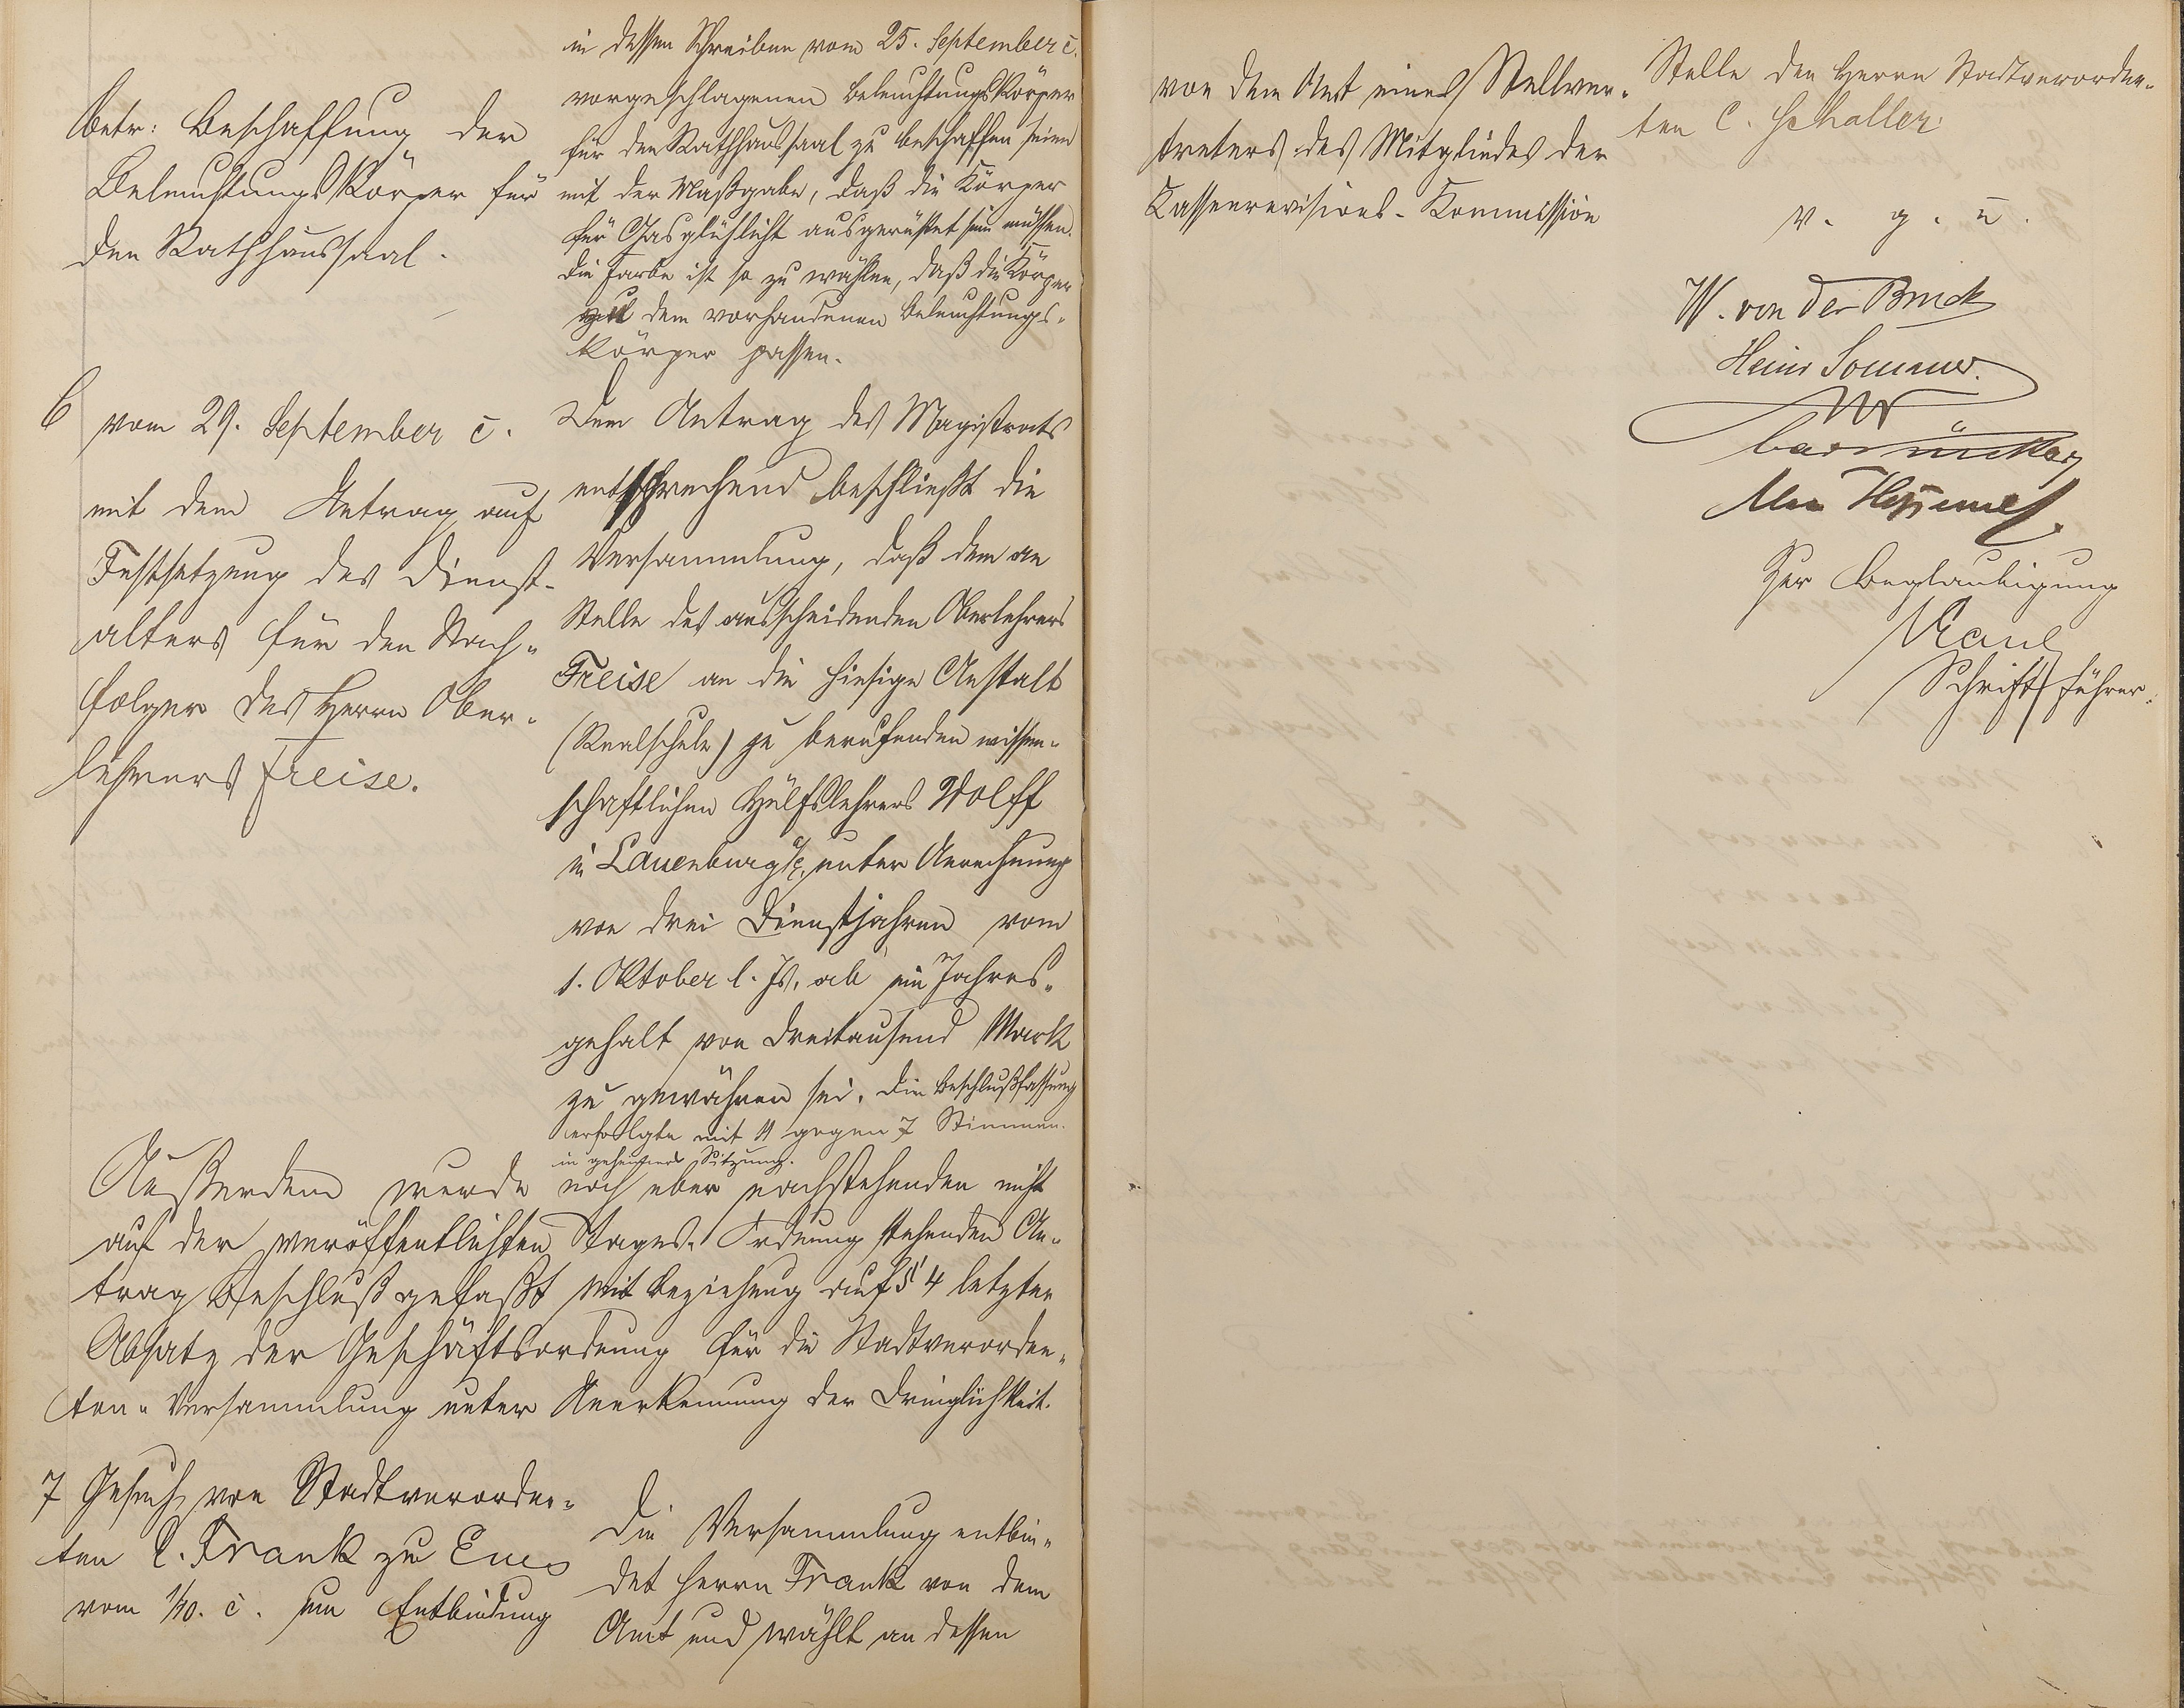 betr: Beschaffung der
Beleuchtungskörper für
den Rathhaussaal.
in dessen Schreiben vom 25. September c.
vorgeschlagenen Beleuchtungskörper
für den Rathhaussaal zu beschaffen seien
mit der Maßgabe, daß die Körper
für Gasglühlicht ausgerüstet sein müssen.
Die Farbe ist so zu wählen, daß die Körper
zu dem vorhandenen Beleuchtungs-
körper passen.
6 vom 29. September c.
mit dem Antrag auf
Festsetzung des Dienst-
alters für den Nach-
folger des Herrn Ober-
lehrers Freise.
Dem Antrag des Magistrats
entsprechend beschließt die
Versammlung, daß dem an
Stelle des ausscheidenden Oberlehrers
Freise an die hiesige Anstalt
(Realschule) zu berufenden wissen-
schaftlichen Hülfslehrers Wolff
in Lauenburg a/E. unter Anrechnung
von drei Dienstjahren vom
1. Oktober l. Js. ab ein Jahres-
gehalt von dreitausend Mark
zu gewähren sei. Die Beschlußfassung
erfolgte mit 11 gegen 7 Stimmen.
in geheimer Sitzung.
Außerdem wurde noch über nachstehenden nicht
auf der veröffentlichten Tages-Ordnung stehenden An-
trag Beschluß gefaßt mit Beziehung auf § 4 letzter
Absatz der Geschäftsordnung für die Stadtverordne-
ten-Versammlung unter Anerkennung der Dringlichkeit.
7 Gesuch von Stadtverordne-
ten C. Frank zu Ems
vom 1/10. c. um Entbindung
Die Versammlung entbin-
det Herrn Frank von dem
Amt und wählt an dessen
von dem Amt eines Stellver-
treters des Mitgliedes der
Kassenrevisions-Kommission
Stelle den Herrn Stadtverordne-
ten C. Schaller.
v. g. u.
W. von der Bruck
Heinr Sommer.
Zur Beglaubigung
Schriftführer.